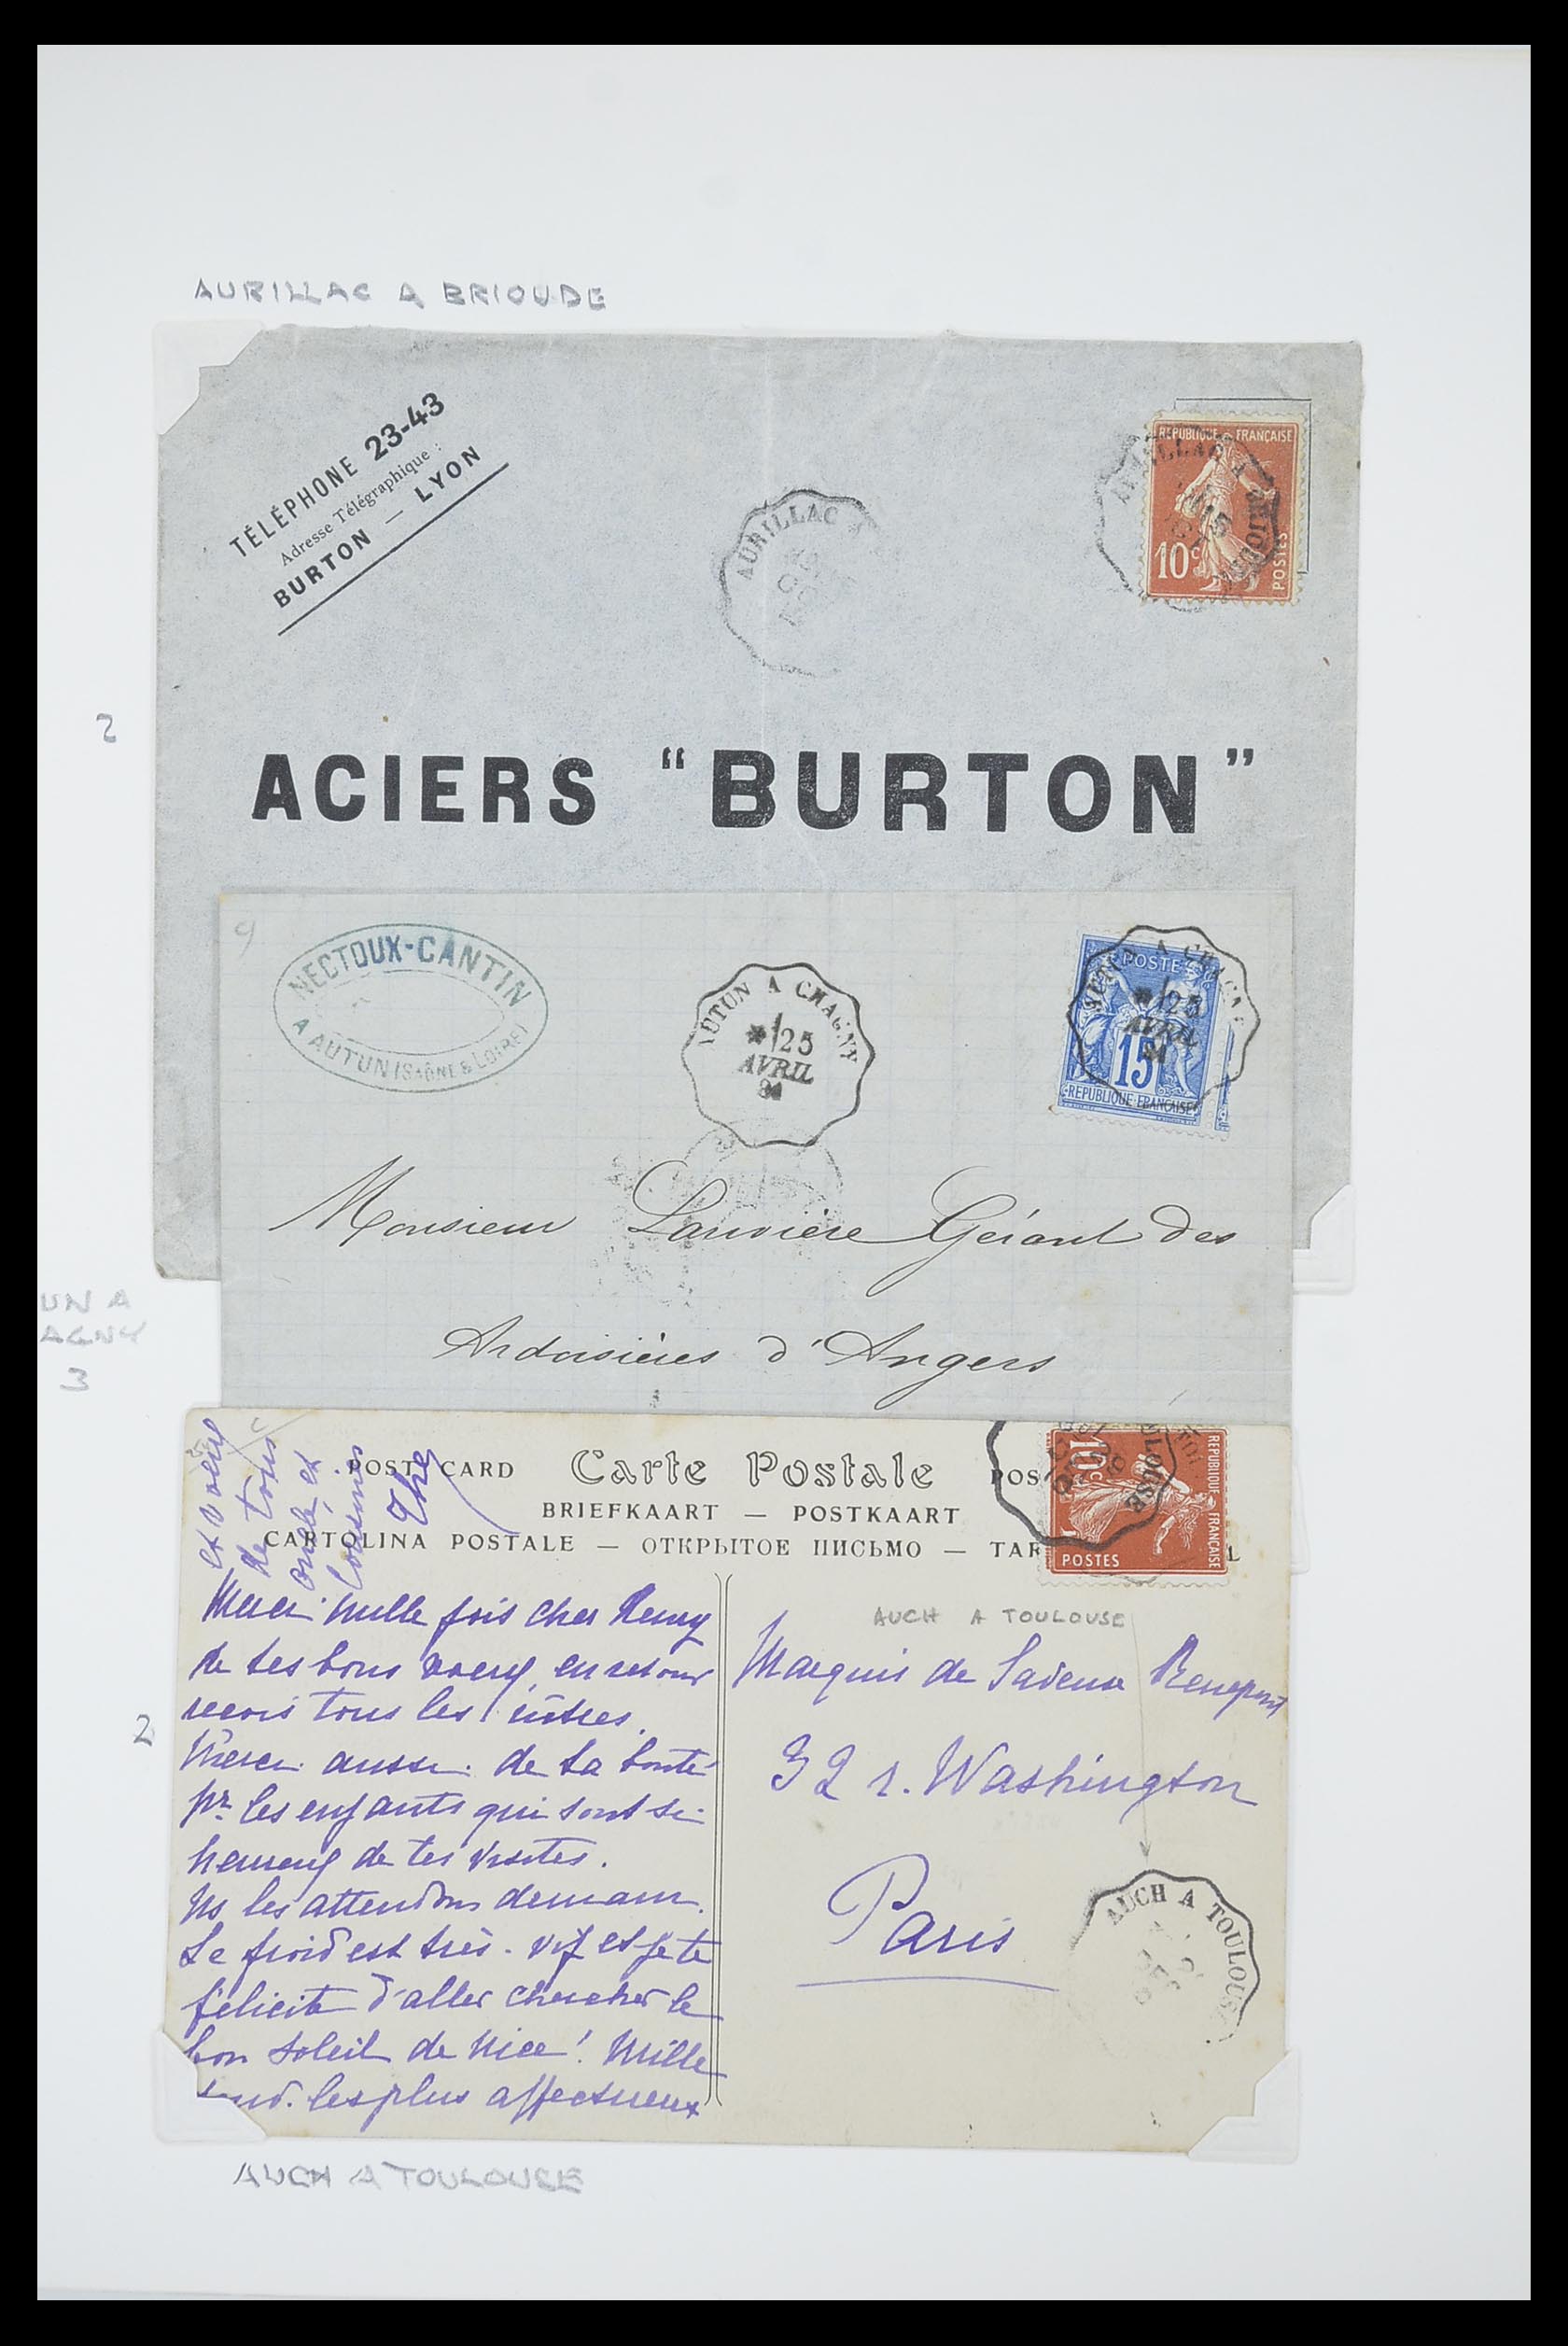 AURILLAC A BRIOUDE
TÉLÉPHONE 23-43
Adresse Télégraphique :
BURTON — LYON
AURILLAC A
REPUBLIQUE FRANÇAISE
10c
POSTES
AURILLAC A BRIOUDE
15
2
ACIERS "BURTON"
NECTOUX-CANTIN
A AUTUN (SAÔNE & LOIRE)
AUTUN A CHAGNY
25
AVRIL
POSTE
15
REPUBLIQUE FRANÇAISE
AUTUN A CHAGNY
25
AVRIL
Monsieur Larivière Gérant des
Ardoisières d'Angers
UN A
AGNY
3
et voeux
de tous
oncle et
Cousines
POST CARD Carte Postale POS
BRIEFKAART — POSTKAART
CARTOLINA POSTALE — ОТКРЫТОЕ ПИСЬМО — TAR L
REPUBLIQUE FRANÇAISE
10c
POSTES
LOUSE
Merci mille fois cher Remy
de tes bons voeux, en retour
reçois tous les nôtres.
Merci aussi de ta bonté
pr les enfants qui sont si
heureux de tes visites.
Ns les attendons demain.
Le froid est très vif et je te
félicite d'aller chercher le
bon soleil de Nice! Mille
les plus affectueux
AUCH A TOULOUSE
Marquis de
32 r. Washington
Paris
AUCH A TOULOUSE
2
AUCH A TOULOUSE